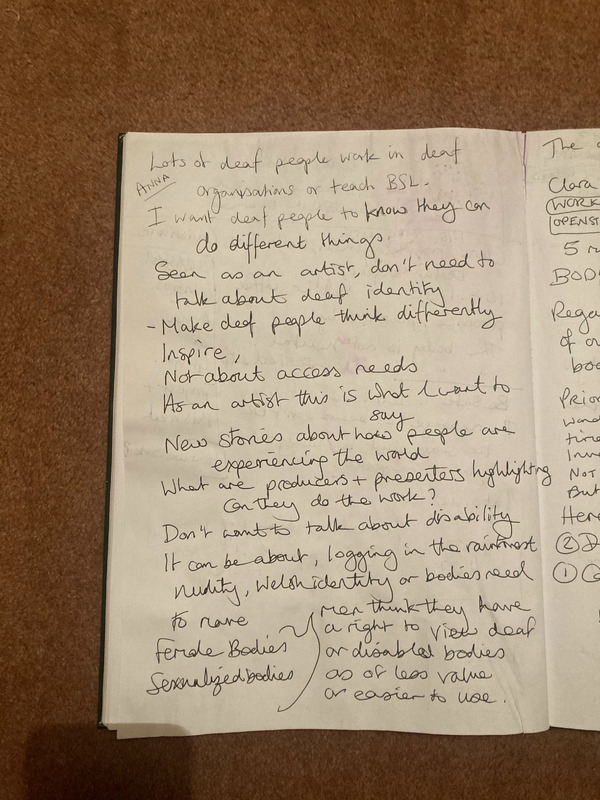 Lots of deaf people work in deaf
ANNA
organisations or teach BSL.
I want deaf people to know they can
do different things.
Seen as an artist, don't need to
talk about deaf identity
- Make deaf people think differently
Inspire,
Not about access needs
As an artist this is what I want to
say
New stories about how people are
experiencing the world
What are producers + presenters highlighting
Can they do the work?
Don't want to talk about disability
It can be about, logging in the rainforest
nudity, Welsh identity or bodies need
to move
Female Bodies
Sexualized bodies
Men think they have
a right to view deaf
or disabled bodies
as of less value
or easier to use.
The
Clara
WORK
OPENS
5
BOD
Rega
of
boo
PRIO
time
NOT
But
Here
②
①